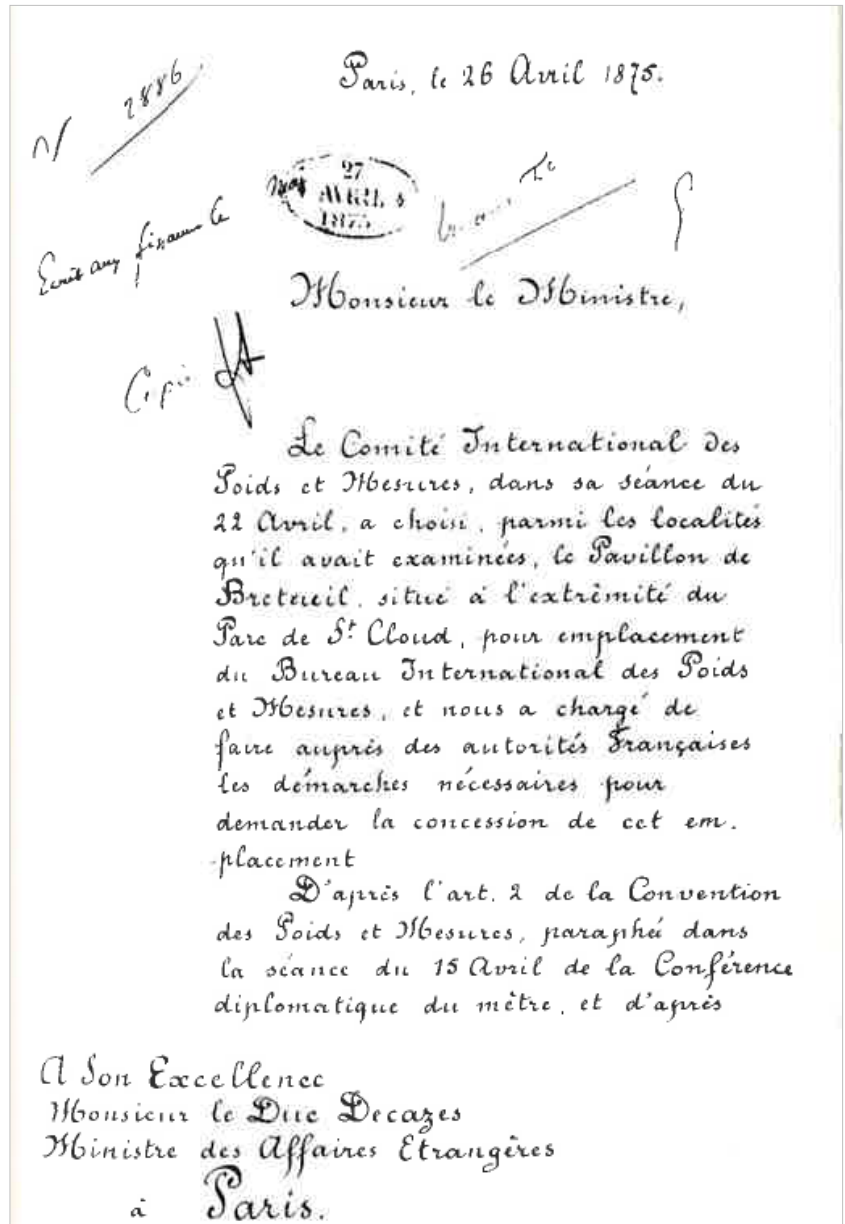 Paris, le 26 Avril 1875.
N 2886
27
AVRIL
1875
Ecrit aux finances le
Monsieur le Ministre,
Copie
Le Comité International des
Poids et Mesures, dans sa séance du
22 Avril, a choisi, parmi les localités
qu'il avait examinées, le Pavillon de
Breteuil, situé à l'extrêmité du
Parc de St Cloud, pour emplacement
du Bureau International des Poids
et Mesures, et nous a chargé de
faire auprès des autorités Françaises
les démarches nécessaires pour
demander la concession de cet em-
-placement
D'après l'art. 2 de la Convention
des Poids et Mesures, paraphé dans
la séance du 15 Avril de la Conférence
diplomatique du mètre, et d'après
A Son Excellence
Monsieur le Duc Decazes
Ministre des Affaires Etrangères
à Paris.